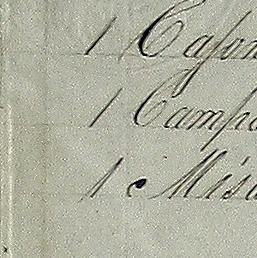 1 Cason
1 Campa
1 Misa